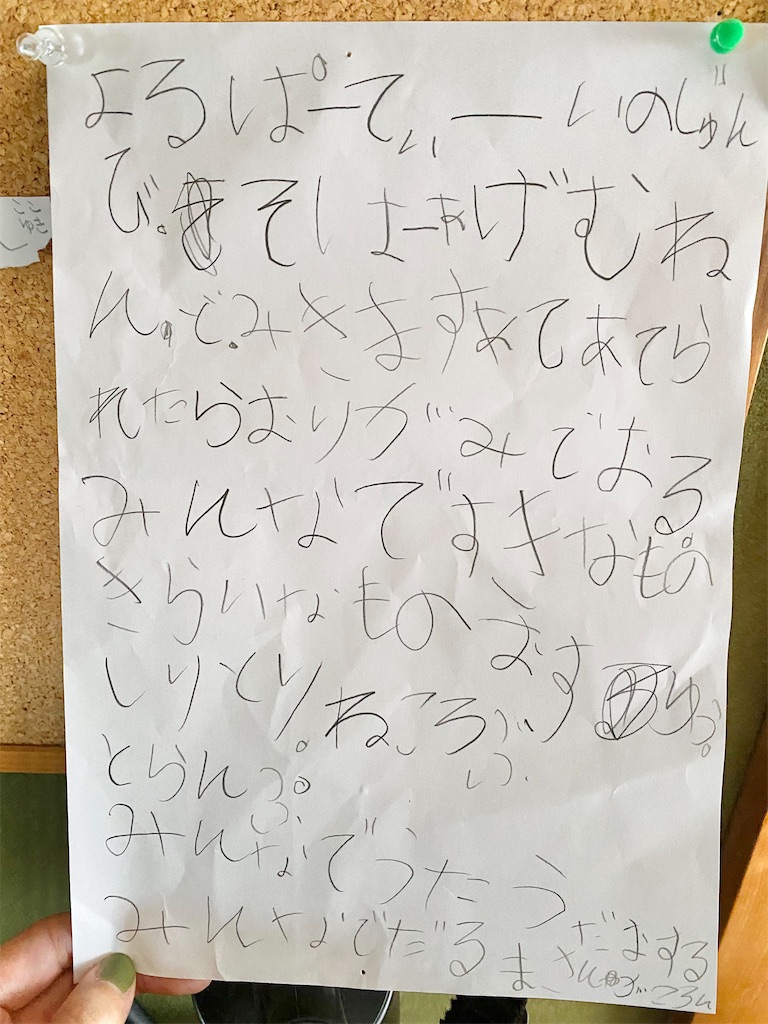 よるぱーてぃーいのじゅん
び。そしよーあげむね
ん。で、みきますあてあてら
れたらおりがみでおる
みんなですきなもの
きらいなもの
しりとり。ねころがる
とらんぷ。
みんなでうたう
みんなでだるまさんが
ころん
だおする
ここ
ゆき